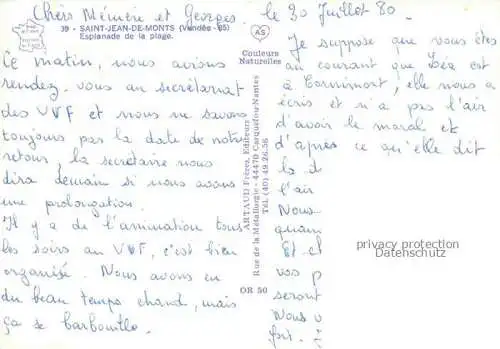 Chers Mémère et Georges. le 30 Juillet 80.
39 - SAINT-JEAN-DE-MONTS (Vendée - 85)
Esplanade de la plage.
AS
Couleurs
Naturelles
Ce matin, nous avions
rendez-vous au secrétariat
des VVF et nous ne savons
toujours pas la date de notre
retour, la secrétaire nous
dira demain si nous avons
une prolongation.
Il y a de l'animation tous
les soirs au VVF, c'est bien
organisé. Nous avons eu
du beau temps chaud, mais
ça se barbouille.
ARTAUD Frères, Editeurs
Rue de la Métallurgie - 44470 Carquefou-Nantes
Tél. (40) 49.26.56
OR 50
Je suppose que vous êtes
au courant que Léa est
à Cormimont, elle nous a
écris et n'a pas l'air
d'avoir le moral et
d'après ce qu'elle dit
la d
l'air
Nous
quan
Et ch
vos p
seront
Nous v
privacy protection
Datenschutz